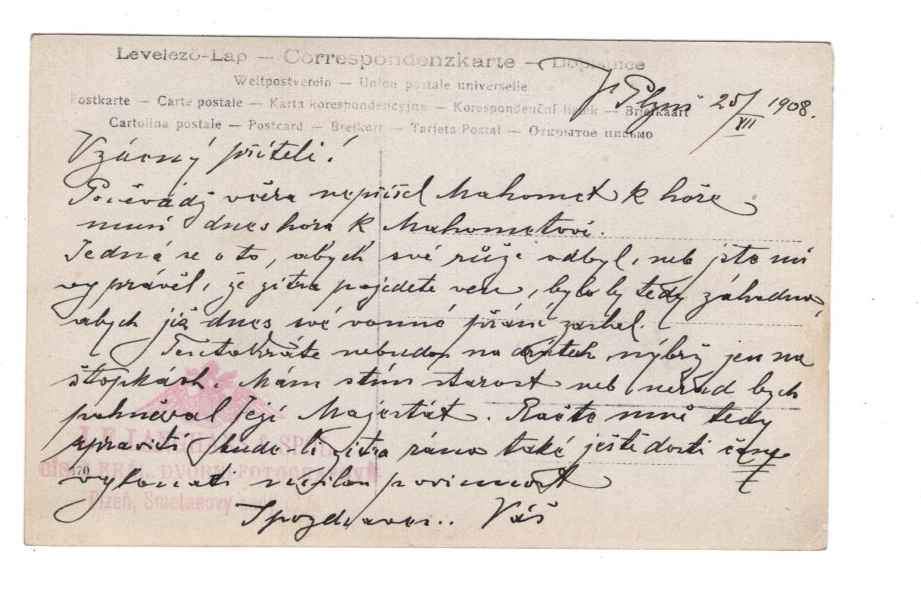 Levelező-Lap — Correspondenzkarte — Dopisnice
Weltpostverein — Union postale universelle
Postkarte — Carte postale — Karta korespondencyjna — Korespondenční lístek — Briefkaart
Cartolina postale — Postcard — Brefkort — Tarjeta Postal — Открытое письмо
V Plzni 25/XII 1908.
Vzácný příteli!
Poněvadž včera nepřišel Mahomet k hoře
musí dnes hora k Mahometovi.
Jedná se o to, abych své růže odbyl, neb jste mi
vyprávěl, že zítra pojedete ven, bylo by tedy záhodno,
abych již dnes své vonné přání zaslal.
Tentokráte nebudou na drátech nýbrž jen na
štopkách. Mám s tím starost neb nerad bych
pohněval Její Majestát. Račte mně tedy
zpraviti bude-li zítra ráno také ještě dosti času
vykonati milou povinnost
S pozdravem.. Váš
DVORNÍ FOTOGRAF
170
Plzeň, Smetanovy sady